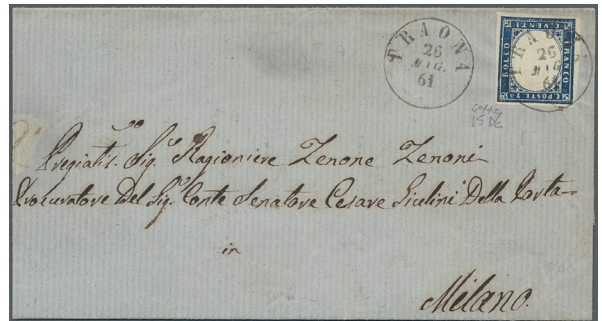 TRAONA
26
MAG.
61
TRAONA
26
MAG
61
C. VENTI
BOLLO
FRANCO
C. POSTE 20
15 Dc
Pregiatis. Sig. Ragioniere Zenone Zenoni
Procuratore Del Sig. Conte Senatore Cesare Giulini Della Porta
in
Milano.